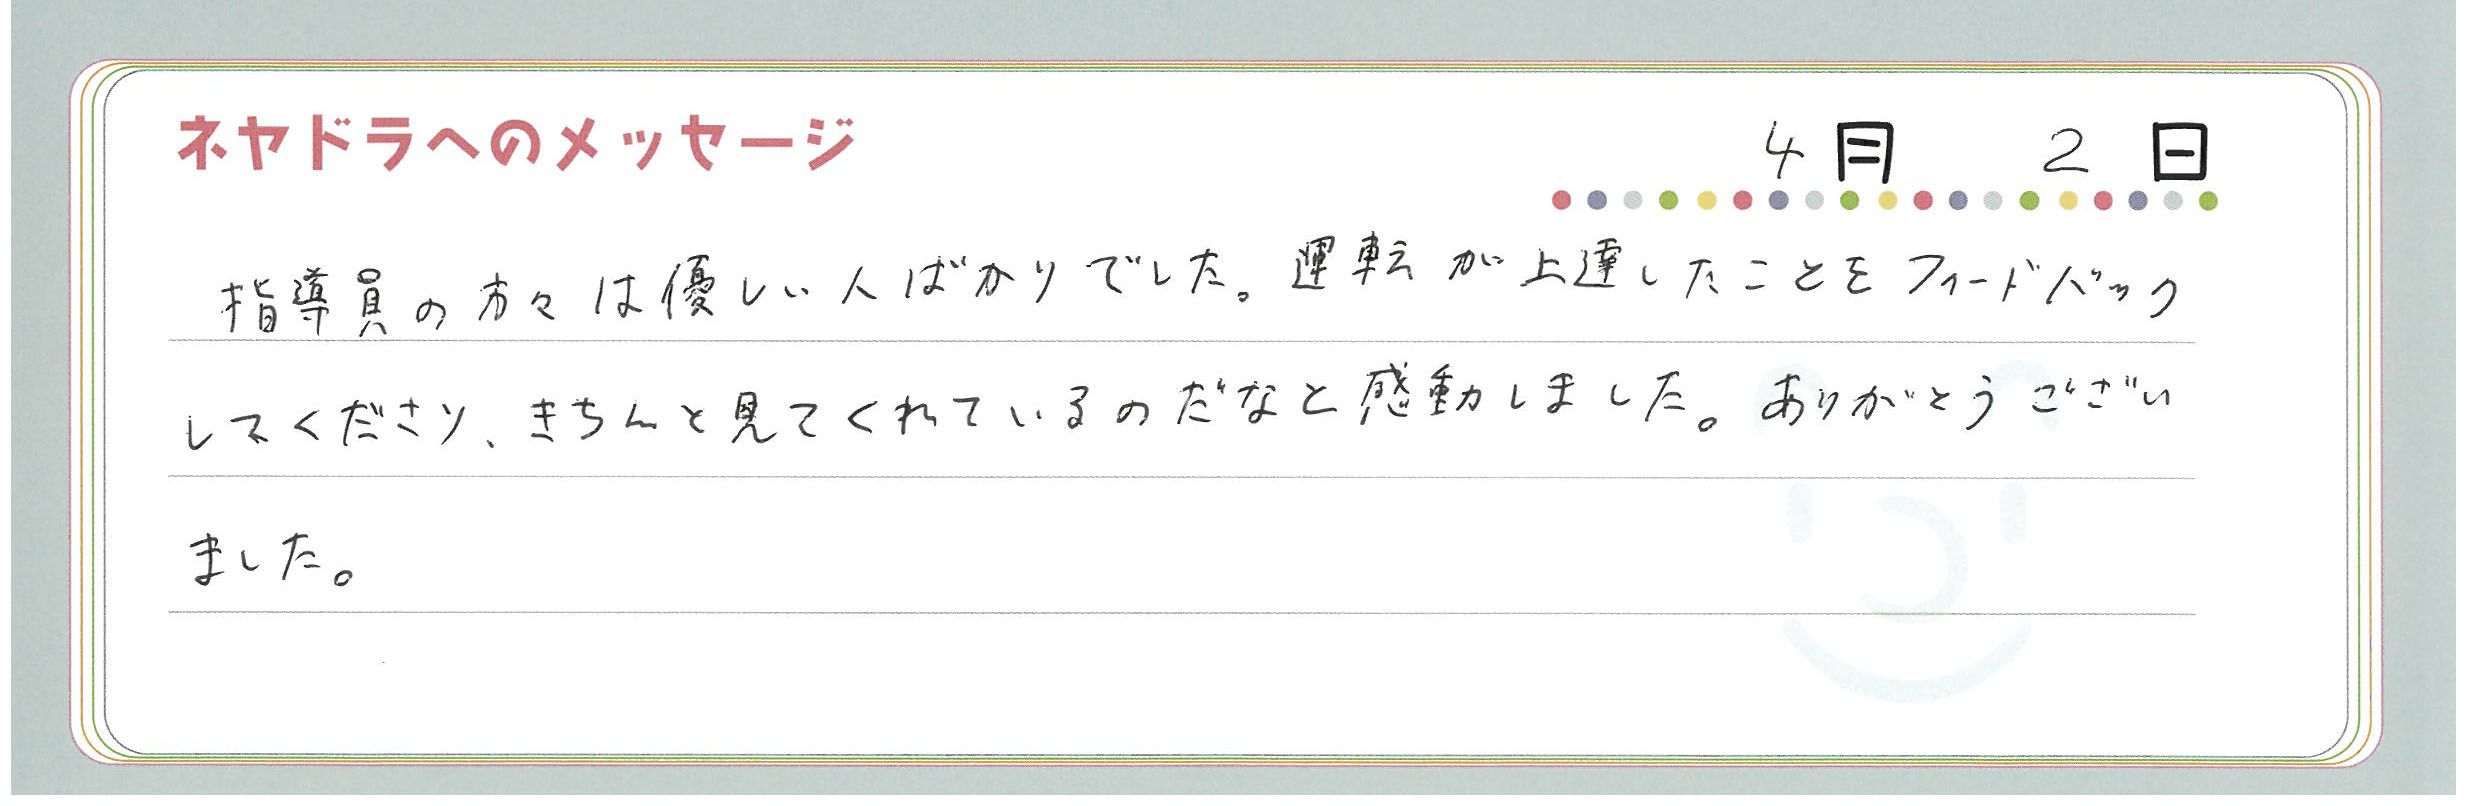 ネヤドラへのメッセージ
4月 2日
指導員の方々は優しい人ばかりでした。運転が上達したことをフィードバック
してくださり、きちんと見てくれているのだなと感動しました。ありがとうござい
ました。